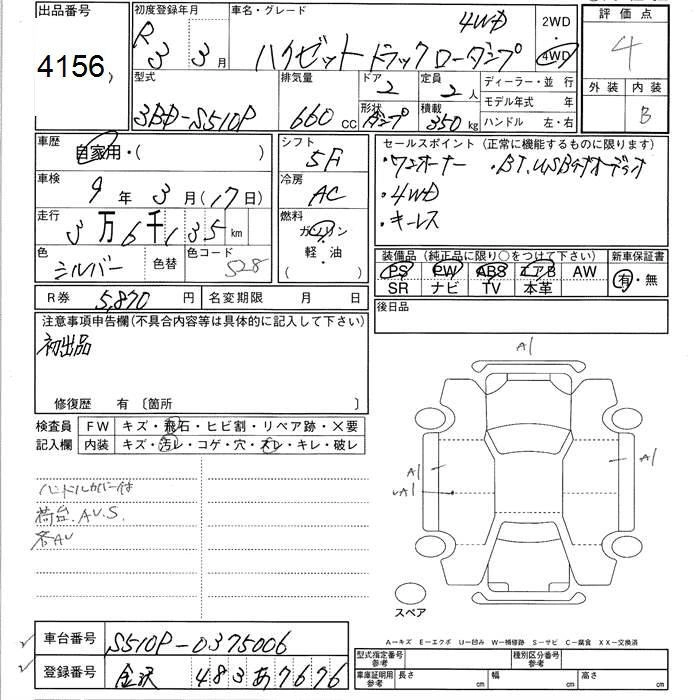 出品番号
4156
初度登録年月
R3 3月
車名・グレード
4WD
ハイゼットトラックローダンプ
2WD
・
4WD
評価点
4
外装 内装
B
型式
3BD-S510P
排気量
660 CC
ドア
2
定員
2人
形状
ダンプ
積載
350 kg
ディーラー・並行
モデル年式 年
ハンドル 左・右
車歴
自家用・( )
シフト
5F
セールスポイント (正常に機能するものに限ります)
・ワンオーナー ・BT.USB付オーディオ
・4WD
・キーレス
車検
9年3月(17日)
冷房
AC
走行
3万6千135km
燃料
ガソリン
軽・油
( )
色
シルバー
色替
色コード
S28
装備品 (純正品に限り○をつけて下さい)
PS PW ABS エアB AW
SR ナビ TV 本革
新車保証書
有・無
R券 5,870円
名変期限 月 日
後日品
注意事項申告欄(不具合内容等は具体的に記入して下さい)
初出品
修復歴 有 〔箇所 〕
検査員
記入欄
FW キズ・飛石・ヒビ割・リペア跡・X要
内装 キズ・汚レ・コゲ・穴・スレ・キレ・破レ
ハンドルカバー付
荷台.AU.S.
各AU
A1
A1
A1
A1
スペア
A-キズ E-エクボ U-凹み W-補修跡 S-サビ C-腐食 XX-交換済
車台番号 S510P-0375006
登録番号 金沢 483あ7676
型式指定番号
参考
種別区分番号
参考
車庫証明用
参考
長さ cm 幅 cm 高さ cm